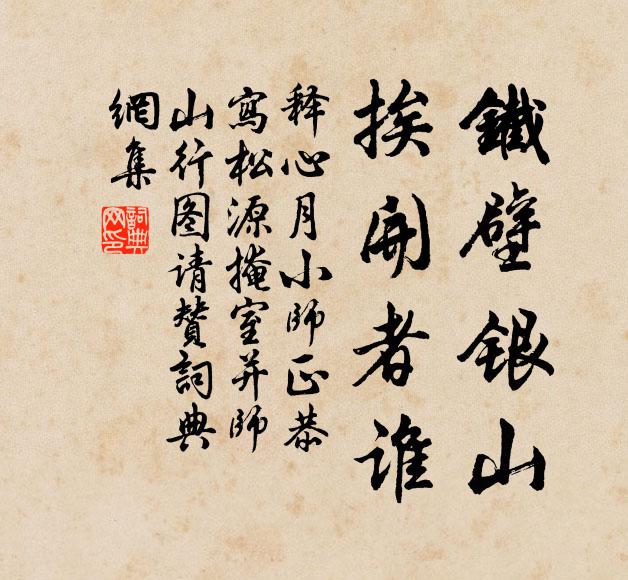 鐵壁银山
挨開者谁
释心月小師正恭
寫松源掩室并師
山行图请赞詞典
網集
詞典网印